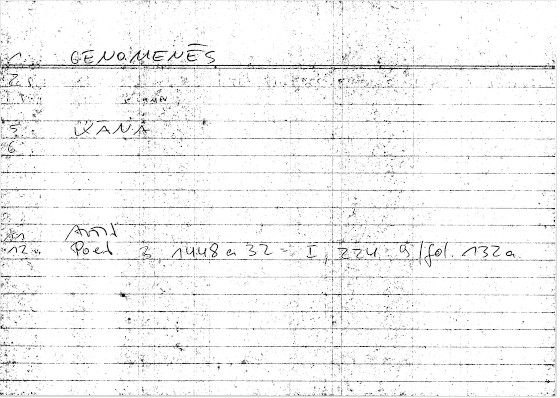 1 GENOMENĒS
2
5 KĀNA
6
11 Arist
12 Poet 3, 1448 a 32 = I, 224. 9 / fol. 132a